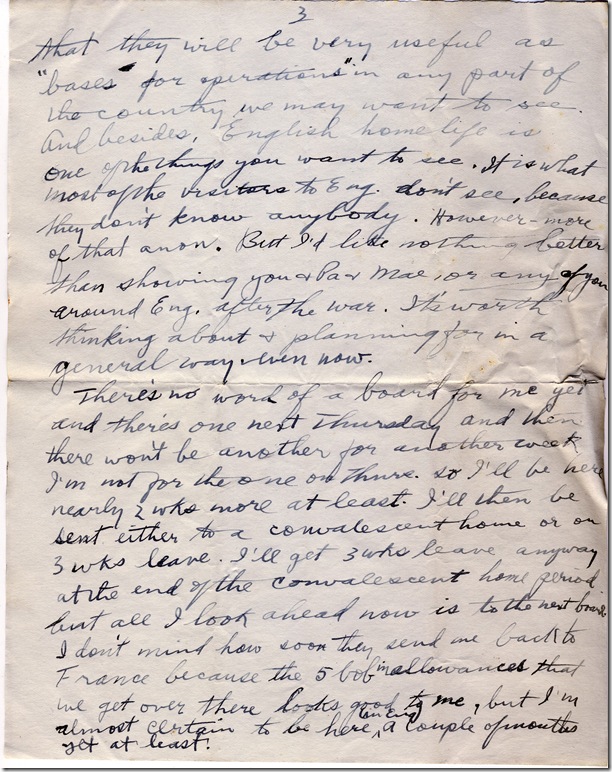 3
that they will be very useful as
"bases for operations" in any part of
the country we may want to see.
And besides, English home life is
one of the things you want to see. It is what
most of the visitors to Eng. don't see, because
they don't know anybody. However - more
of that anon. But I'd like nothing better
than showing you & Pa & Mae, or any of you
around Eng. after the war. It's worth
thinking about & planning for in a
general way even now.
There's no word of a board for me yet
and there's one next Thursday and then
there won't be another for another week
I'm not for the one on Thurs. so I'll be here
nearly 2 wks more at least. I'll then be
sent either to a convalescent home or on
3 wks leave. I'll get 3 wks leave anyway
at the end of the convalescent home period
but all I look ahead now is to the next board
I don't mind how soon they send me back to
France because the 5 bob in allowances that
we get over there looks good to me, but I'm
almost certain to be here, (in Eng) a couple of months
yet at least.